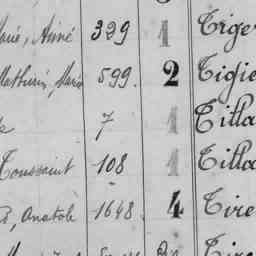 Aimé 329 1 Tige
Mathurin, Marie 599. 2 Tigie
7 1 Tilla
Toussaint 108 1 Tilla
Anatole 1648. 4 Tire